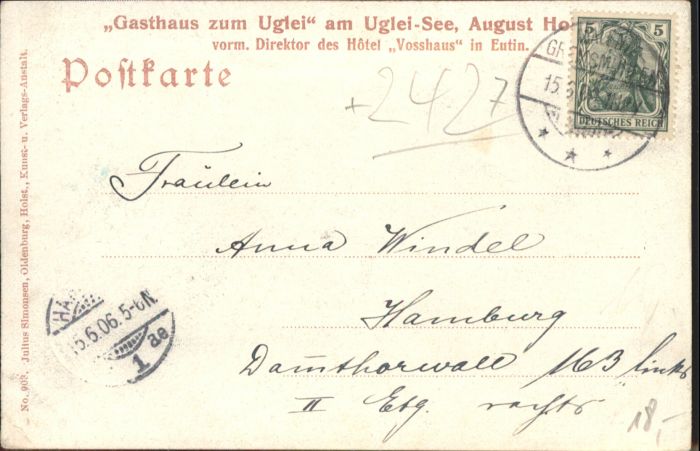 „Gasthaus zum Uglei“ am Uglei-See, August
vorm. Direktor des Hôtel „Vosshaus“ in Eutin.
Postkarte
+2427
5 5
DEUTSCHES REICH
15.6.06
Fräulein
Anna Windel
Hamburg
Dammthorwall 163 links
II Etg. rechts
15.6.06. 5-6N.
1 ae
18,-
No. 903. Julius Simonsen, Oldenburg, Holst., Kunst- u. Verlags-Anstalt.